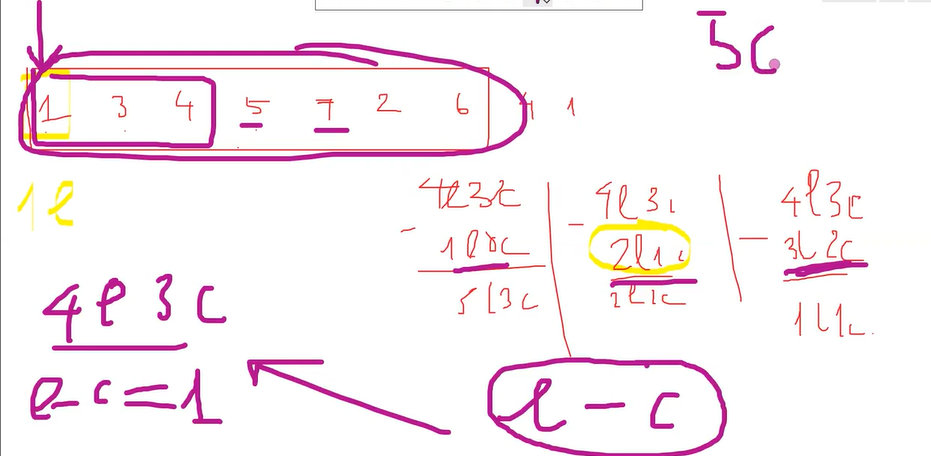 5c
1 3 4 5 7 2 6 4 1
1l
4l3c 4l3c 4l3c
- 1l0c - 2l1c - 3l2c
5l3c 2l1c 1l1c
4l 3c
l-c=1
l-c